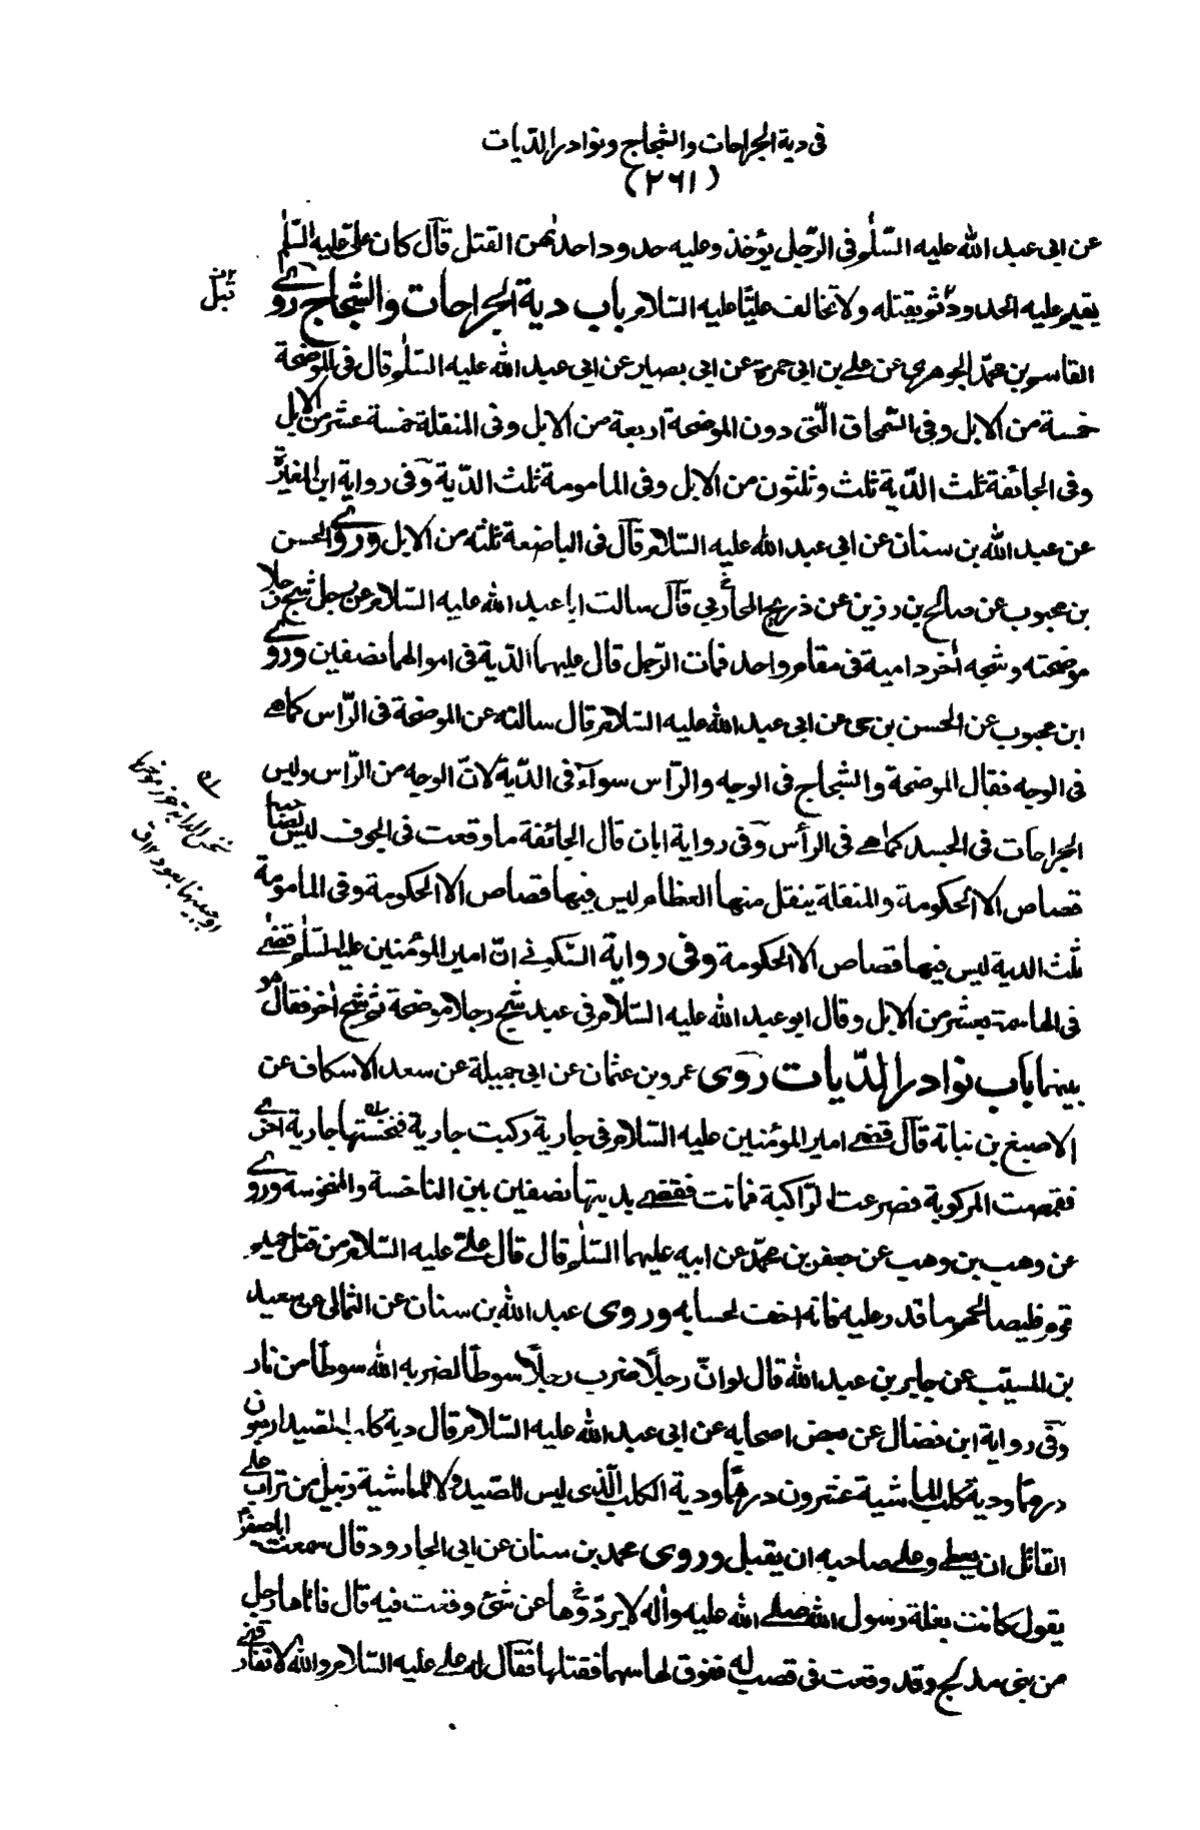 فى دية الجراحات والشجاج ونوادر الديات
(٢٦١)
عن ابى عبد الله عليه السّلم فى الرّجل يؤخذ وعليه حدود احدهن القتل قال كان علىّ عليه السّلم
يقيم عليه الحدود ثم يقتله ولا تخالف عليّا عليه السلام باب دية الجراحات والشجاج روى
القاسم بن محمّد الجوهرى عن على بن ابى حمزة عن ابى بصير عن ابى عبد الله عليه السّلم قال فى الموضحة
خمسة من الابل وفى السّمحاق الّتى دون الموضحة اربعة من الابل وفى المنقلة خمسة عشر من الابل
وفى الجائفة ثلث الدّية ثلث وثلثون من الابل وفى المامومة ثلث الدّية وفى رواية ابن المغيرة
عن عبد الله بن سنان عن ابى عبد الله عليه السّلام قال فى الباضعة ثلثة من الابل وروى الحسن
بن محبوب عن صالح بن رزين عن ذريح المحاربى قال سالت ابا عبد الله عليه السّلام عن رجل شج رجلا
موضحته وشجه اخر دامية فى مقام واحد فمات الرّجل قال عليهما الدّية فى اموالهما نصفين وروى
ابن محبوب عن الحسن بن حى عن ابى عبد الله عليه السّلام قال سالته عن الموضحة فى الرّاس كما هى
فى الوجه فقال الموضحة والشجاج فى الوجه والرّاس سوآء فى الدّية لانّ الوجه من الرّاس وليس
الجراحات فى الجسد كما هى فى الرأس وفى رواية ابان قال الجائفة ما وقعت فى الجوف ليس لصاحبها
قصاص الا الحكومة والمنقلة ينقل منها العظام ليس فيها قصاص الا الحكومة وفى المامومة
ثلث الدية ليس فيها قصاص الا الحكومة وفى رواية السّكونى انّ امير المؤمنين عليه السّلم قضى
فى الهاشمة بعشر من الابل وقال ابو عبد الله عليه السّلام فى عبد شج رجلا موضحة ثم شج اخر فقال هو
بينهما باب نوادر الدّيات روى عمرو بن عثمان عن ابى جميلة عن سعد الاسكاف عن
الاصبغ بن نباتة قال قضى امير المؤمنين عليه السّلام فى جارية ركبت جارية فنخستها جارية اخرى
فقمصت المركوبة فصرعت الرّاكبة فماتت فقضى بديتها نصفين بين الناخسة والمنخوسة وروى
عن وهب بن وهب عن جعفر بن محمّد عن ابيه عليهما السّلم قال قال علىّ عليه السّلام من قتل حميم
قوم فليصالحهم ما قدر عليه فانه اخف لحسابه وروى عبد الله بن سنان عن الثمالى عن سعيد
بن المسيّب عن جابر بن عبد الله قال لو انّ رجلًا ضرب رجلًا سوطًا لضربه الله سوطًا من نار
وفى رواية ابن فضال عن بعض اصحابه عن ابى عبد الله عليه السّلام قال دية كلب الصيد اربعون
درهمًا ودية كلب الماشية عشرون درهمًا ودية الكلب الّذى ليس للصّيد ولا للماشية زنبيل من تراب على
القاتل ان يعطى وعلى صاحبه ان يقبل وروى محمد بن سنان عن ابى الجارود قال سمعت ابا جعفر
يقول كانت بغلة رسول الله صلى الله عليه واله لا يردّوها عن شئ وقعت فيه قال فاتاها رجل
من بنى مدلج وقد وقعت فى قصب له ففوق لها سهما فقتلها فقال له على عليه السّلام والله لا تفارقنى